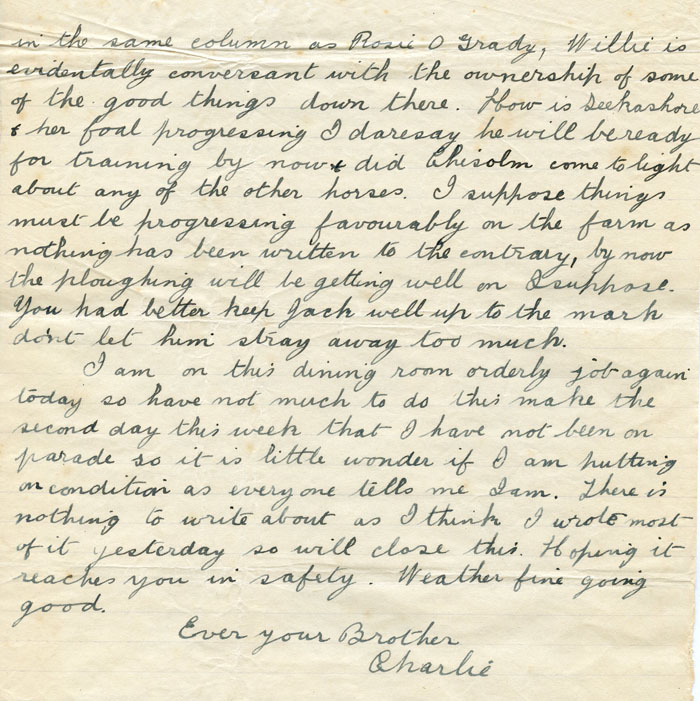 in the same column as Rosie O Grady, Willie is
evidentally conversant with the ownership of some
of the good things down there. How is Seekashore
& her foal progressing I daresay he will be ready
for training by now & did Chisolm come to light
about any of the other horses. I suppose things
must be progressing favourably on the farm as
nothing has been written to the contrary, by now
the ploughing will be getting well on I suppose.
You had better keep Jack well up to the mark
don't let him stray away too much.
I am on this dining room orderly job again
today so have not much to do this make the
second day this week that I have not been on
parade so it is little wonder if I am putting
on condition as everyone tells me I am. There is
nothing to write about as I think I wrote most
of it yesterday so will close this. Hoping it
reaches you in safety. Weather fine going
good.
Ever your Brother
Charlie